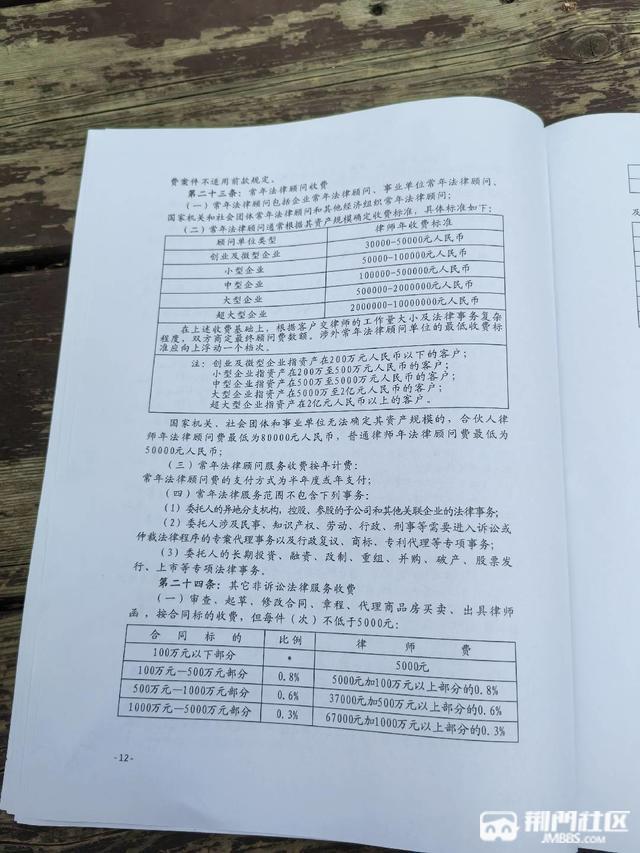 费案件不适用前款规定。
第二十三条：常年法律顾问收费
（一）常年法律顾问包括企业常年法律顾问、事业单位常年法律顾问、
国家机关和社会团体常年法律顾问和其他经济组织常年法律顾问；
（二）常年法律顾问通常根据其资产规模确定收费标准，具体标准如下：
顾问单位类型 律师年收费标准
创业及微型企业 30000-50000元人民币
小型企业 50000-100000元人民币
中型企业 100000-500000元人民币
大型企业 500000-2000000元人民币
超大型企业 2000000-10000000元人民币
在上述收费基础上，根据客户交律师的工作量大小及法律事务复杂
程度，双方商定最终顾问费数额。涉外常年法律顾问单位的最低收费标
准应向上浮动一个档次。
注：创业及微型企业指资产在200万元人民币以下的客户；
小型企业指资产在200万至500万元人民币的客户；
中型企业指资产在500万至5000万元人民币的客户；
大型企业指资产在5000万至2亿元人民币的客户；
超大型企业指资产在2亿元人民币以上的客户。
国家机关、社会团体和事业单位无法确定其资产规模的，合伙人律
师年法律顾问费最低为80000元人民币，普通律师年法律顾问费最低为
50000元人民币；
（三）常年法律顾问服务收费按年计费：
常年法律顾问费的支付方式为半年度或年支付；
（四）常年法律服务范围不包含下列事务：
（1）委托人的异地分支机构，控股、参股的子公司和其他关联企业的法律事务；
（2）委托人涉及民事、知识产权、劳动、行政、刑事等需要进入诉讼或
仲裁法律程序的专案代理事务以及行政复议、商标、专利代理等专项事务；
（3）委托人的长期投资、融资、改制、重组、并购、破产、股票发
行、上市等专项法律事务。
第二十四条：其它非诉讼法律服务收费
（一）审查、起草、修改合同、章程、代理商品房买卖、出具律师
函，按合同标的收费，但每件（次）不低于5000元：
合同标的 比例 律师费
100万元以下部分 * 5000元
100万元—500万元部分 0.8% 5000元加100万元以上部分的0.8%
500万元—1000万元部分 0.6% 37000元加500万元以上部分的0.6%
1000万元—5000万元部分 0.3% 67000元加1000万元以上部分的0.3%
-12-
及
荆门社区
JMBBS.COM